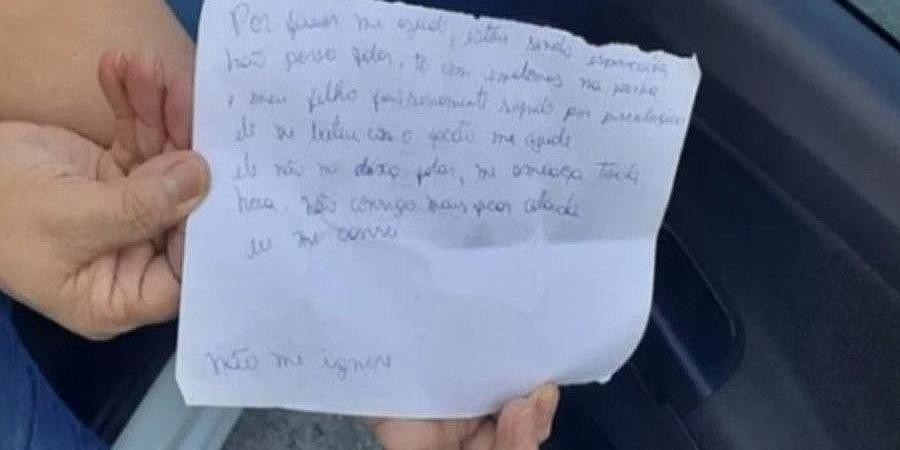 Por favor me ajude, estou sendo espancada
não posso falar, to com ematomas na perna
e meu filho
ele me bateu com o me ajude
ele não me deixa falar, me ameaça toda
hora. não consigo mais ficar calada
eu me cansei
não me ignore